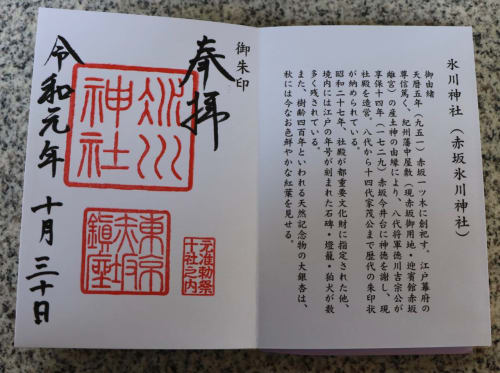 氷川神社(赤坂氷川神社)
御由緒
天暦五年(九五一)赤坂一ツ木に創祀す。江戸幕府の
尊信篤く、紀州藩中屋敷(現赤坂御用地・迎賓館赤坂
離宮)の産土神の由縁により、八代将軍徳川吉宗公が
享保十四年(一七二九)赤坂今井台に神徳を謝し、現
社殿を造営。八代から十四代家茂公まで歴代の朱印状
が納められている。
昭和二十七年、社殿が都重要文化財に指定された他、
境内には江戸の年号が刻まれた石碑・燈籠・狛犬が数
多く残されている。
また、樹齢四百年といわれる天然記念物の大銀杏は、
秋には今なお色鮮やかな紅葉を見せる。
御朱印
奉拝
氷川
神社
元准勅祭
十社之内
東京
赤坂
鎭座
令和元年 十月三十日